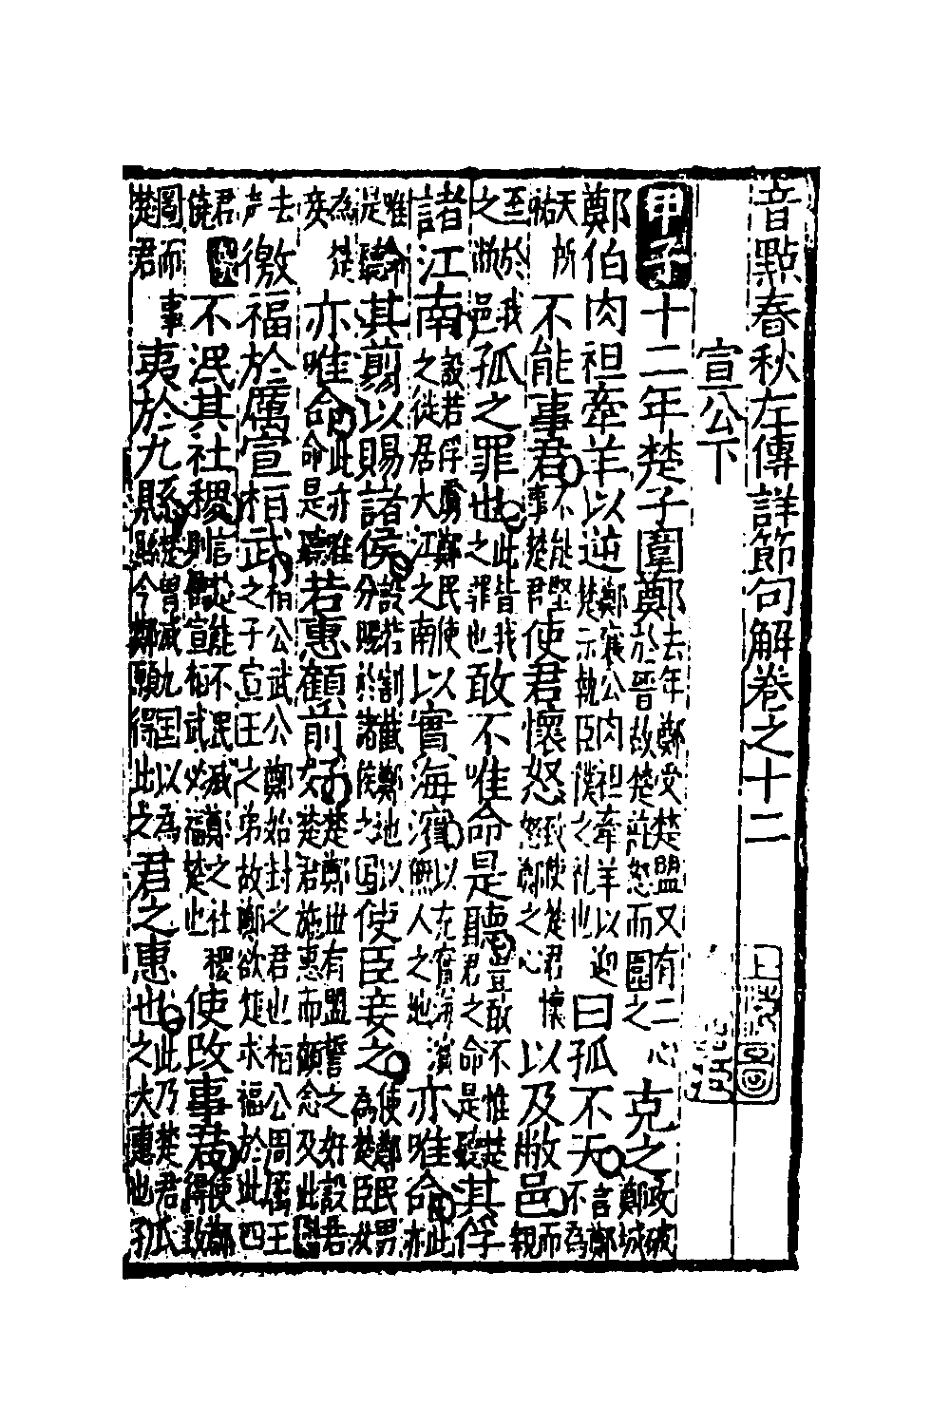 音點春秋左傳詳節句解卷之十二
宣公下
甲子十二年楚子圍鄭去年鄭受楚盟又有二心於晉故楚莊怒而圍之克之攻破鄭城
鄭伯肉袒牽羊以逆鄭襄公肉袒牽羊以迎楚示執臣僕之礼也曰孤不天言鄭不為
天所祐不能事君不能堅事楚君使君懷怒致使楚君懷怒鄭之心以及敝邑而親
至於我之敝邑孤之罪也此皆我之罪也敢不唯命是聽豈敢不惟楚君之命是聽其俘
諸江南設若俘虜鄭民使之徙居大江之南以實海濱以充實海濱無人之地亦唯命此亦
唯命是聽其翦以賜諸侯設若割截鄭地以分賜於諸侯之国使臣妾之使鄭民男為楚臣女
為楚妾亦唯命此亦唯命是聽若惠顧前好楚鄭世有盟誓之好設君若楚君施惠而顧念及此
去声徼福於厲宣桓武桓公武公鄭始封之君也桓公周厲王之子宣王之弟故鄭欲楚求福於此四
君饒不泯其社稷信從能不泯滅鄭之社稷則厲宣桓武必福楚也使改事君使鄭得改
圖而事楚君夷於九縣楚曾滅九国以為縣今鄭願得此之君之惠也此乃楚君之大惠也孤